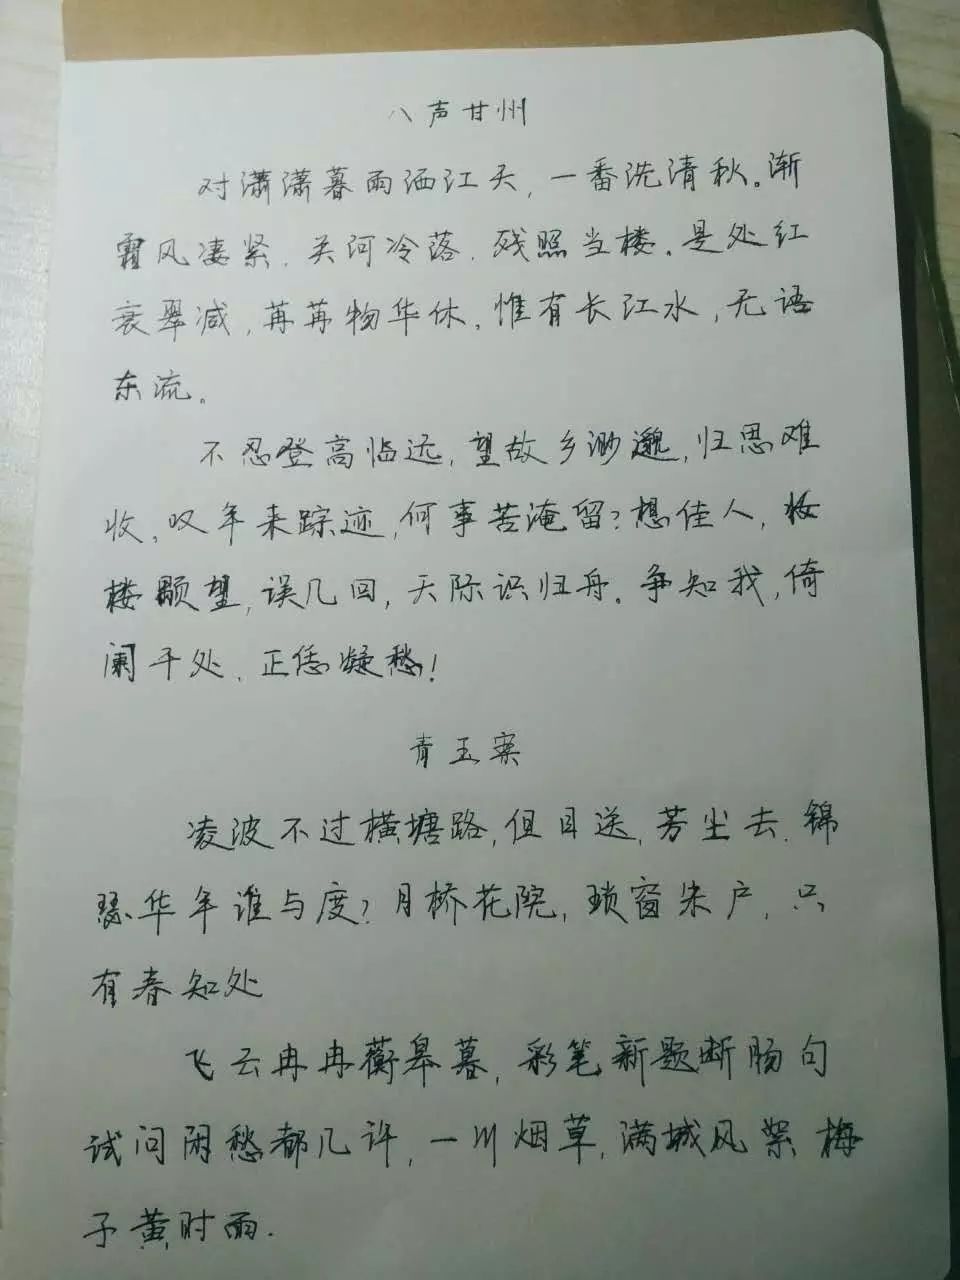 八声甘州
对潇潇暮雨洒江天,一番洗清秋。渐
霜风凄紧.关河冷落.残照当楼.是处红
衰翠减,苒苒物华休.惟有长江水,无语
东流。
不忍登高临远,望故乡渺邈,归思难
收,叹年来踪迹,何事苦淹留?想佳人,妆
楼颙望,误几回,天际识归舟.争知我,倚
阑干处.正恁凝愁!
青玉案
凌波不过横塘路,但目送,芳尘去.锦
瑟华年谁与度?月桥花院,琐窗朱户,只
有春知处
飞云冉冉蘅皋暮,彩笔新题断肠句
试问闲愁都几许,一川烟草,满城风絮梅
子黄时雨.